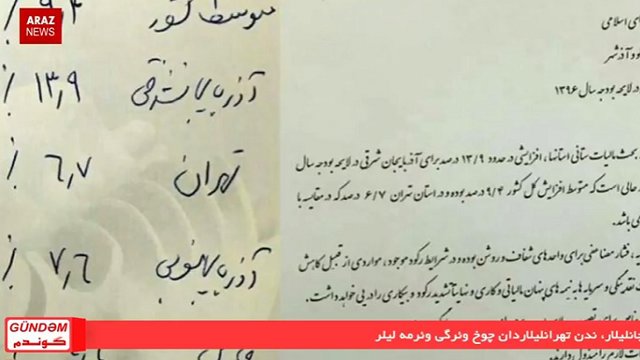 ARAZ
NEWS
متوسط کشور ۹٫۴ ٪
آذربایجانشرقی ۱۳٫۹ ٪
تهران ۶٫۷ ٪
آذربایجان ۷٫۶ ٪
ی اسلامی
و آذرشهر
در لایحه بودجه سال ۱۳۹۶
بحث مالیات ستانی استانها، افزایشی در حدود ۱۳/۹ درصد برای آذربایجان شرقی در لایحه بودجه سال
حالی است که متوسط افزایش کل کشور ۹/۴ درصد بوده و در استان تهران ۶/۷ درصد که در مقایسه با
می باشد.
فشار مضاعفی برای واحدهای شفاف و روشن بوده و در شرایط رکود موجود، مواردی از قبیل کاهش
نقدینگی و سرمایه ها به نیمه های پنهان مالیاتی و کاری و نهایتا تشدید رکود و بیکاری را در پی خواهد داشت.
GÜNDƏM
گوندم
جانلیلار، ندن تهرانلیلاردان چوخ وئرگی وئرمه لیلر